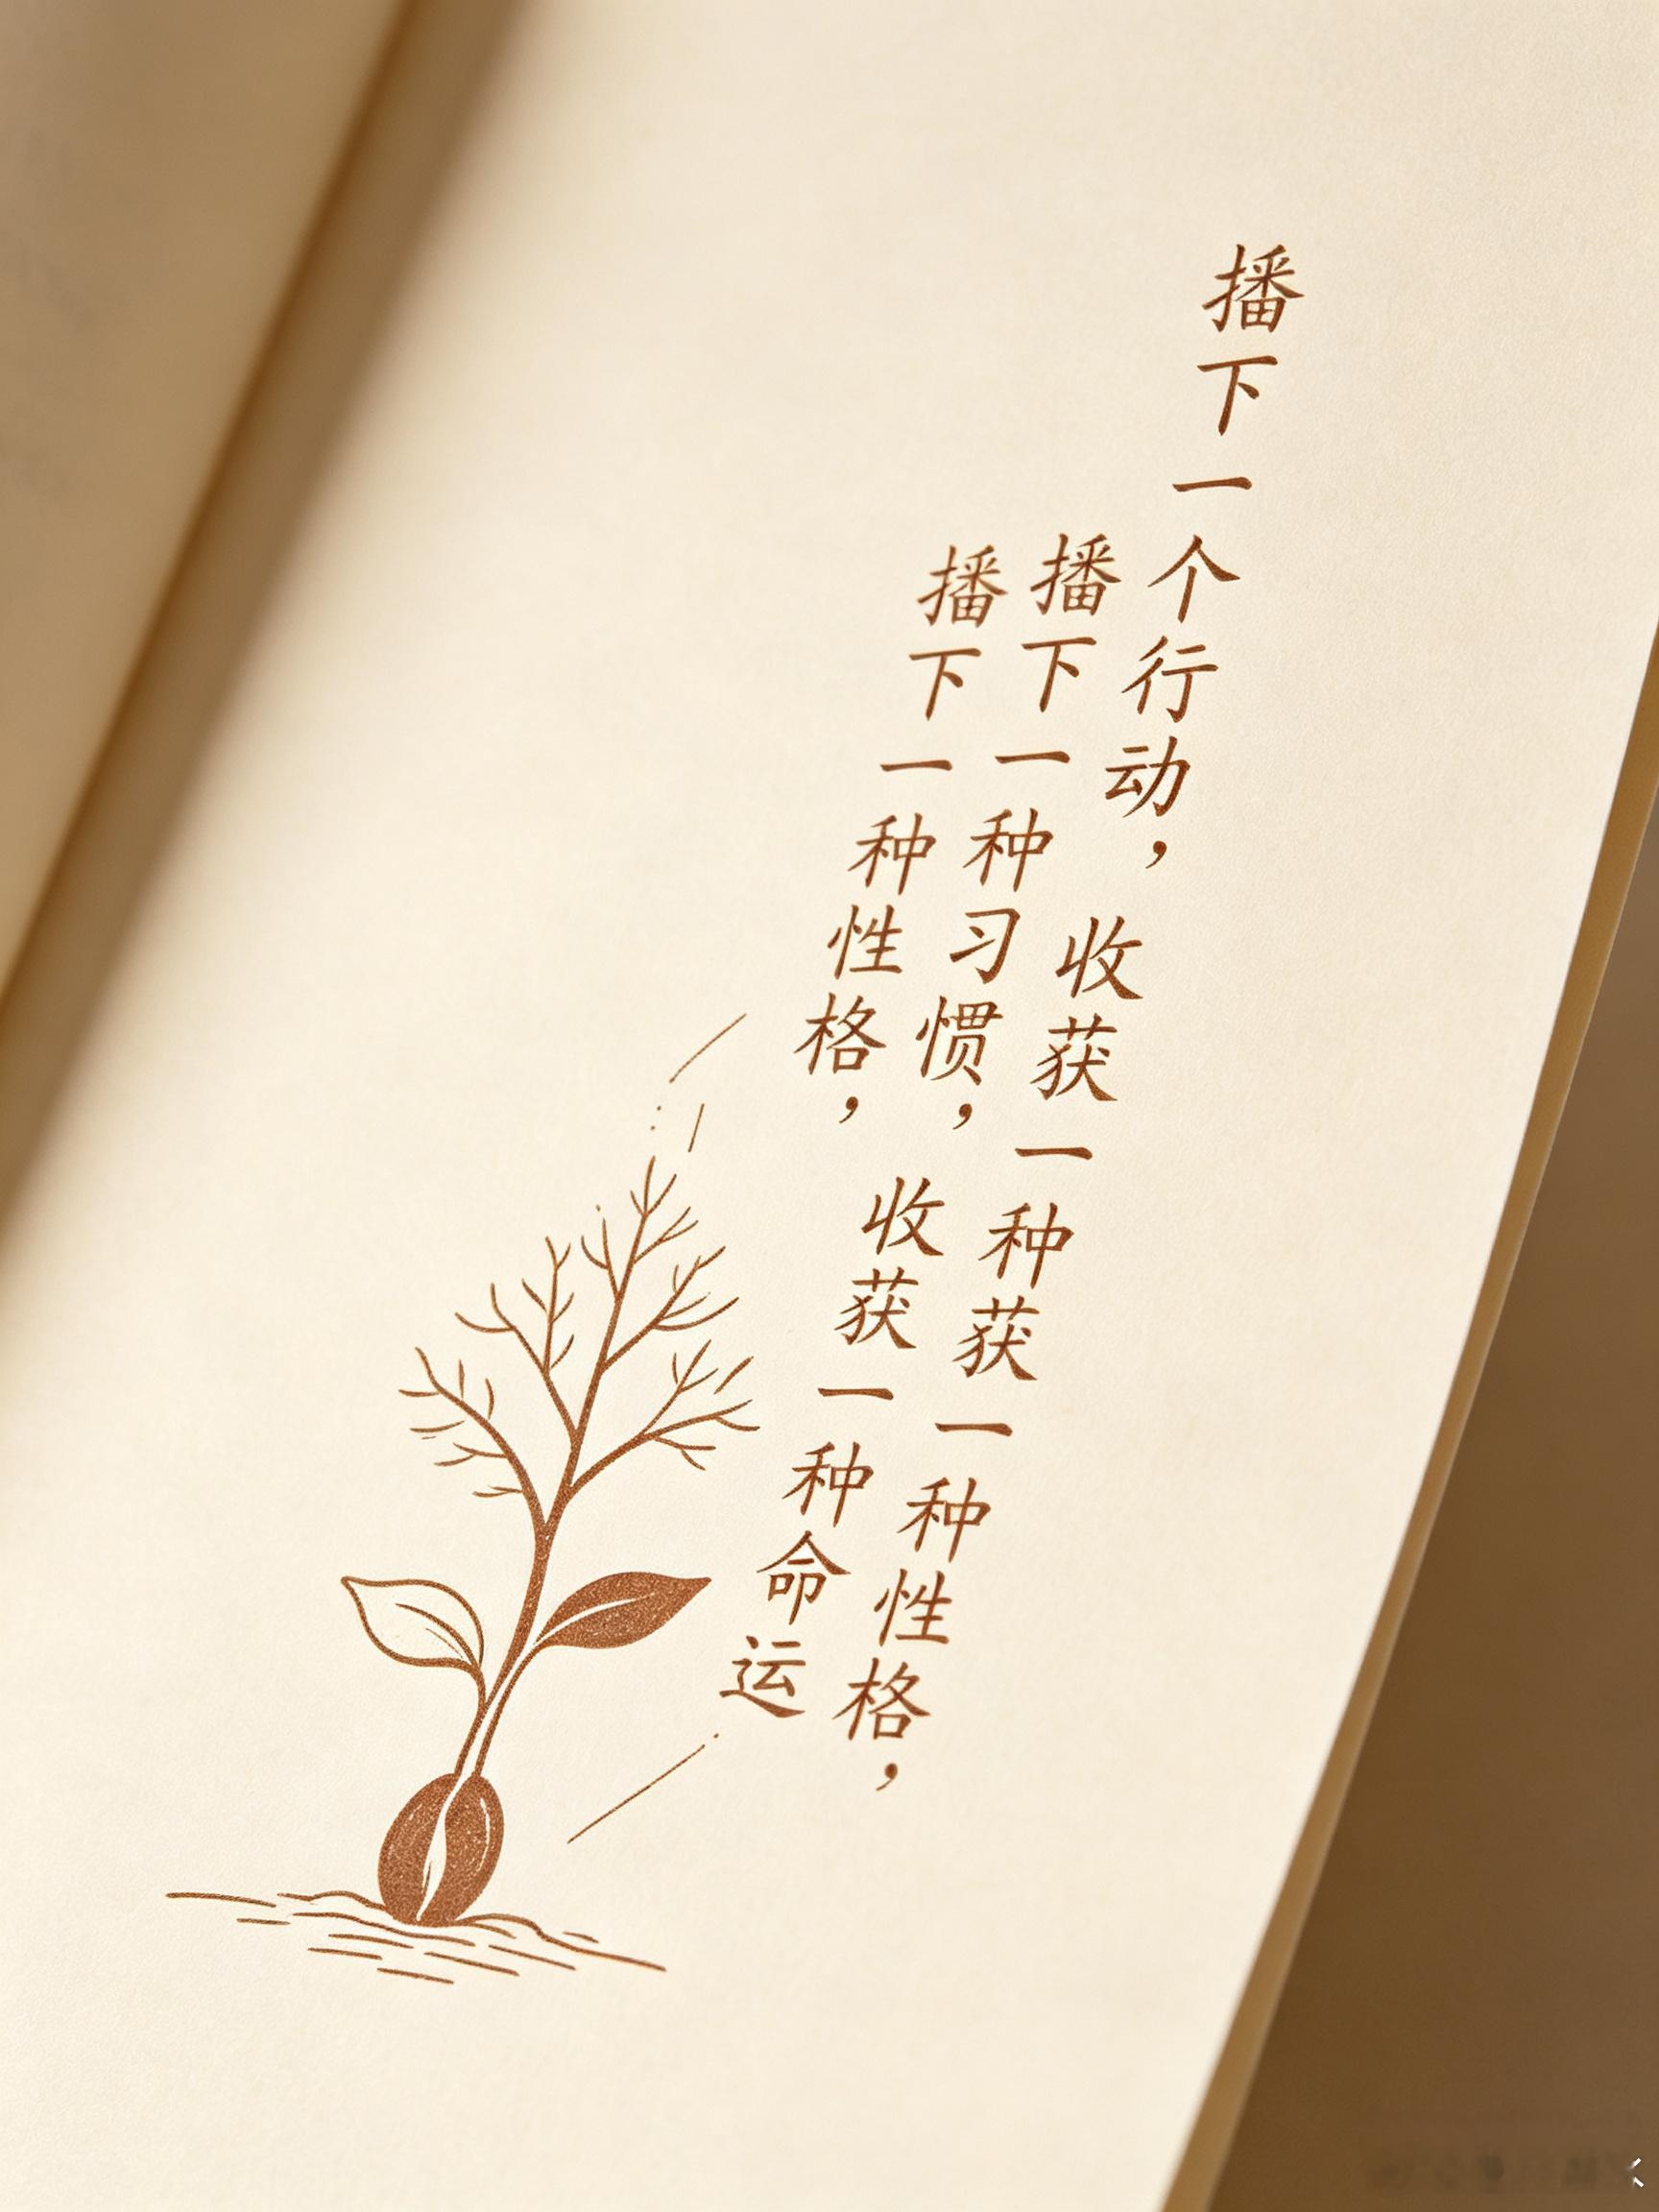 播下一个行动，收获一种获一种性格，
播下一种习惯，收获一种命运
播下一种性格，